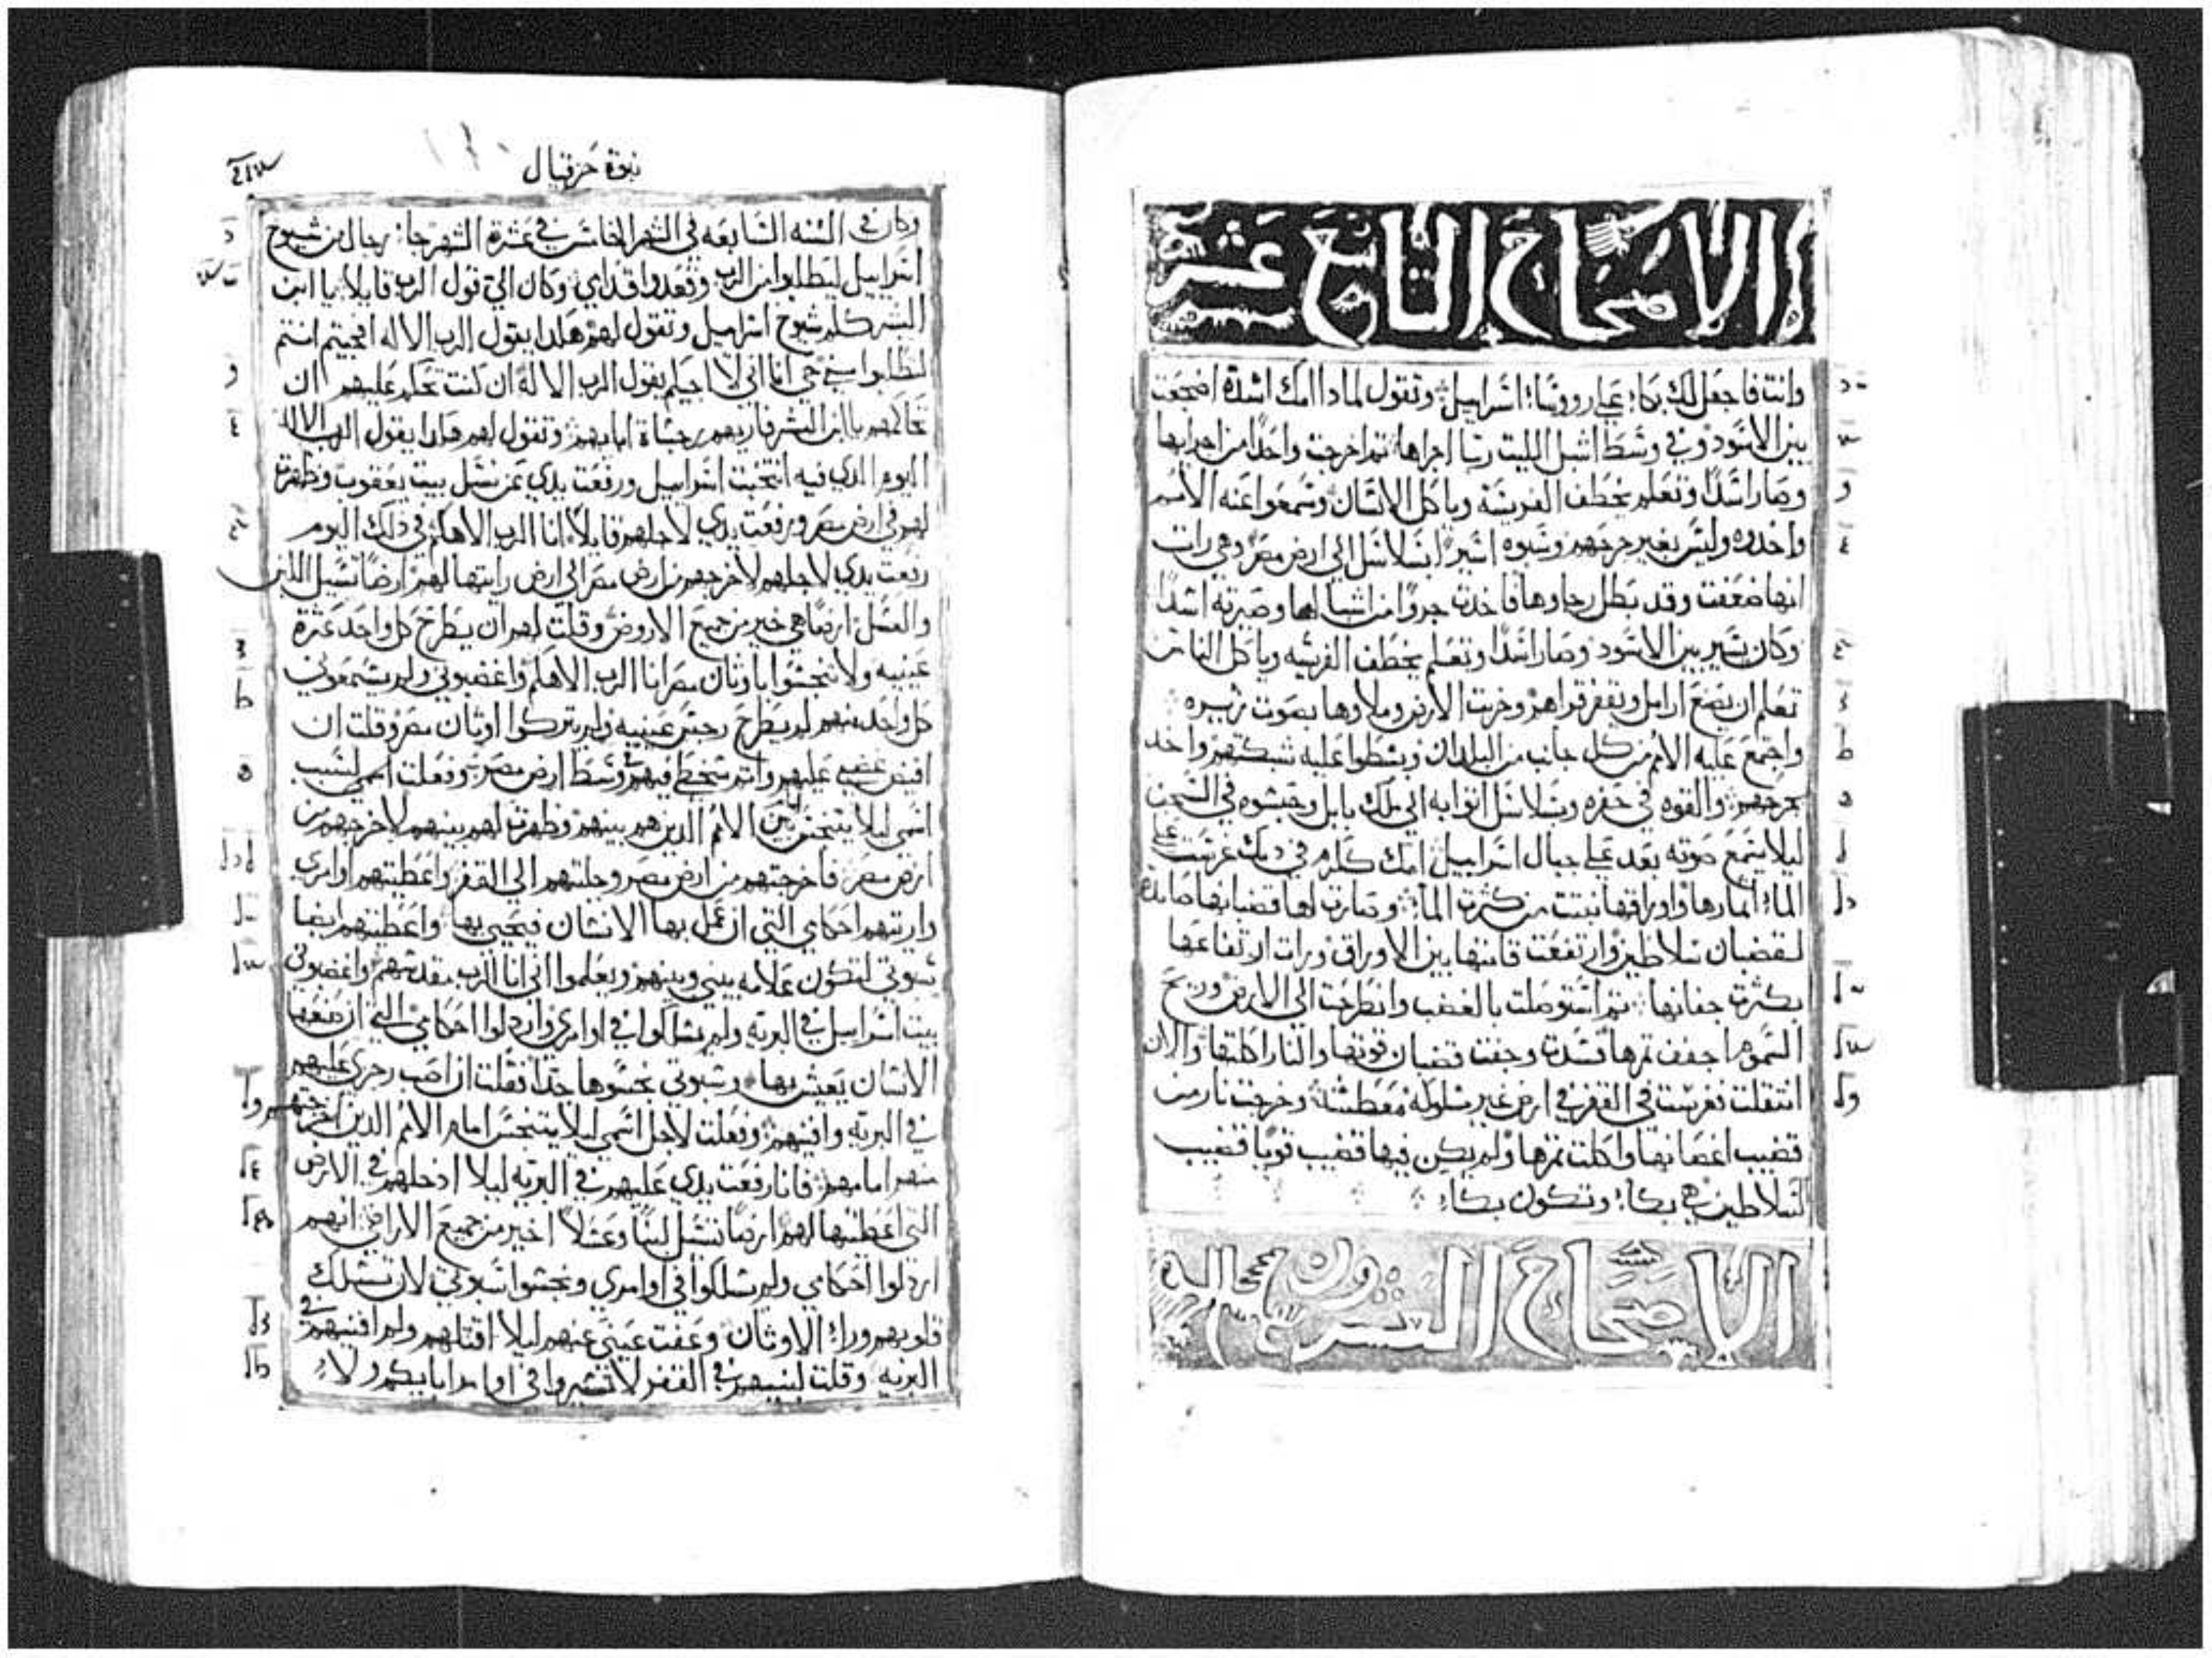 الاصحاح التاسع عشر
وانت فاجعل لك بكاء على رووسا اسراييل وتقول لماذا امك اسدة اضجعت
بين الاسود وفي وسط اشبل الليت ربا اجراها تم اخرجت واحدا من اجرايها
وصار اسدا وتعلم يخطف الفريسه وياكل الانسان وسمعوا عنه الامم
واخدوه وليس بغير جرحهم وسبوه اسير ابسلاسل الى ارض مصر وهي رات
انها ضعفت وقد بطل رجاوها فاخدت جروا من اشبالها وصيرته اسدا
وكان يسير بين الاسود وصار اسدا وتعلم يخطف الفريسه وياكل الناس
تعلم ان يصنع ارامل ويقفر قراهم وخربت الارض وملاوها بصوت زييره
واجتمع عليه الامم من كل جانب من البلدان وبسطوا عليه شبكتهم واخد
بجرحهم والقوه في حفره وبسلاسل اتوا به الى ملك بابل وحبسوه في السجن
ليلا يسمع صوته بعد على جبال اسراييل امك ككرم في دمك غرست على
الماء اتمارها واوراقها نبتت من كثرت الماء وصارت لها قضبانها صايده
لقضبان سلاطين وارتفعت قامتها بين الاوراق ورات ارتفاعها
بكثرت جفانها تم استوصلت بالغضب وانطرحت الى الارض وريح
السموم اجفف تمرها فسدت وجفت قضبان قوتها والنار اكلتها والان
انتقلت نغرست في القفر في ارض غير مسلوكه معطشة وخرجت نار من
قضيب اغصانها واكلت تمرها ولم يكن فيها قضيب قويا قضيب
لسلاطين هي بكاء وتكون بكاء
الاصحاح العشرون
نبوة حزقيال
وكان في السنه السابعه في الشهر الخامس في عشرة الشهر جاء رجال من شيوخ
اسراييل ليطلبوا من الرب وقعدوا قدامي وكان الي قول الرب قايلا يا ابن
البشر كلم شيوخ اسراييل وتقول لهم هكذا يقول الرب الاله اتجيتم انتم
لتطلبوا مني حي انا اني لا اجيبكم يقول الرب الاله ان كنت تحكم عليهم ان
تحاكمهم يا ابن البشر فاريهم رجساة ابايهم وتقول لهم هكذا يقول الرب الاله
اليوم الدي فيه انتخبت اسراييل ورفعت يدي عن نسل بيت يعقوب وظهرت
لهم في ارض مصر ورفعت يدي لاجلهم قايلا انا الرب الاهكم في ذلك اليوم
رفعت يدي لاجلهم لاخرجهم من ارض مصر الى ارض رايتها لهم ارضا تسيل اللبن
والعسل ارضا هي خير من جميع الاروض وقلت لهم ان يطرح كل واحد عثرة
عينيه ولا تنجسوا باوثان مصر انا الرب الاهكم واغضبوني ولم يسمعوني
كل واحد منهم لم يطرح رجس عينيه ولم يتركوا اوثان مصر وقلت ان
افيض غضبي عليهم واتم سخطي فيهم وسط ارض مصر وفعلت اسمي لسبب
اسمي ليلا يتنجس بين الامم الدين هم بينهم وظهرت لهم بينهم لاخرجهم من
ارض مصر فاخرجتهم من ارض مصر وجلبتهم الى القفر واعطيتهم اوامري
واريتهم احكامي التي ان عمل بها الانسان فيحيى بها واعطيتهم ايضا
سبوتي لتكون علامه بيني وبينهم ويعلموا اني انا الرب مقدسهم واغضبوني
بيت اسراييل في البريه ولم يسلكوا في اوامري واردلوا احكامي التي ان صنعها
الانسان يعيش بها وسبوتي نجسوها جدا فقلت ان اصب رجزي عليهم
في البريه وافنيهم وفعلت لاجل اسمي ليلا يتنجس امام الامم الدين اخرجتهم
منهم امامهم فانا رفعت يدي عليهم في البريه ليلا ادخلهم في الارض
التي اعطيتها لهم ارضا تسيل لبنا وعسلا اخير من جميع الاراضي انهم
اردلوا احكامي ولم يسلكوا في اوامري ونجسوا سبوتي لان تسلك
قلوبهم وراء الاوثان وعفت عيني عنهم ليلا اقتلهم ولم افنيهم في
البريه وقلت لبنيهم في القفر لا تسيروا في اوامر ابايكم ولا